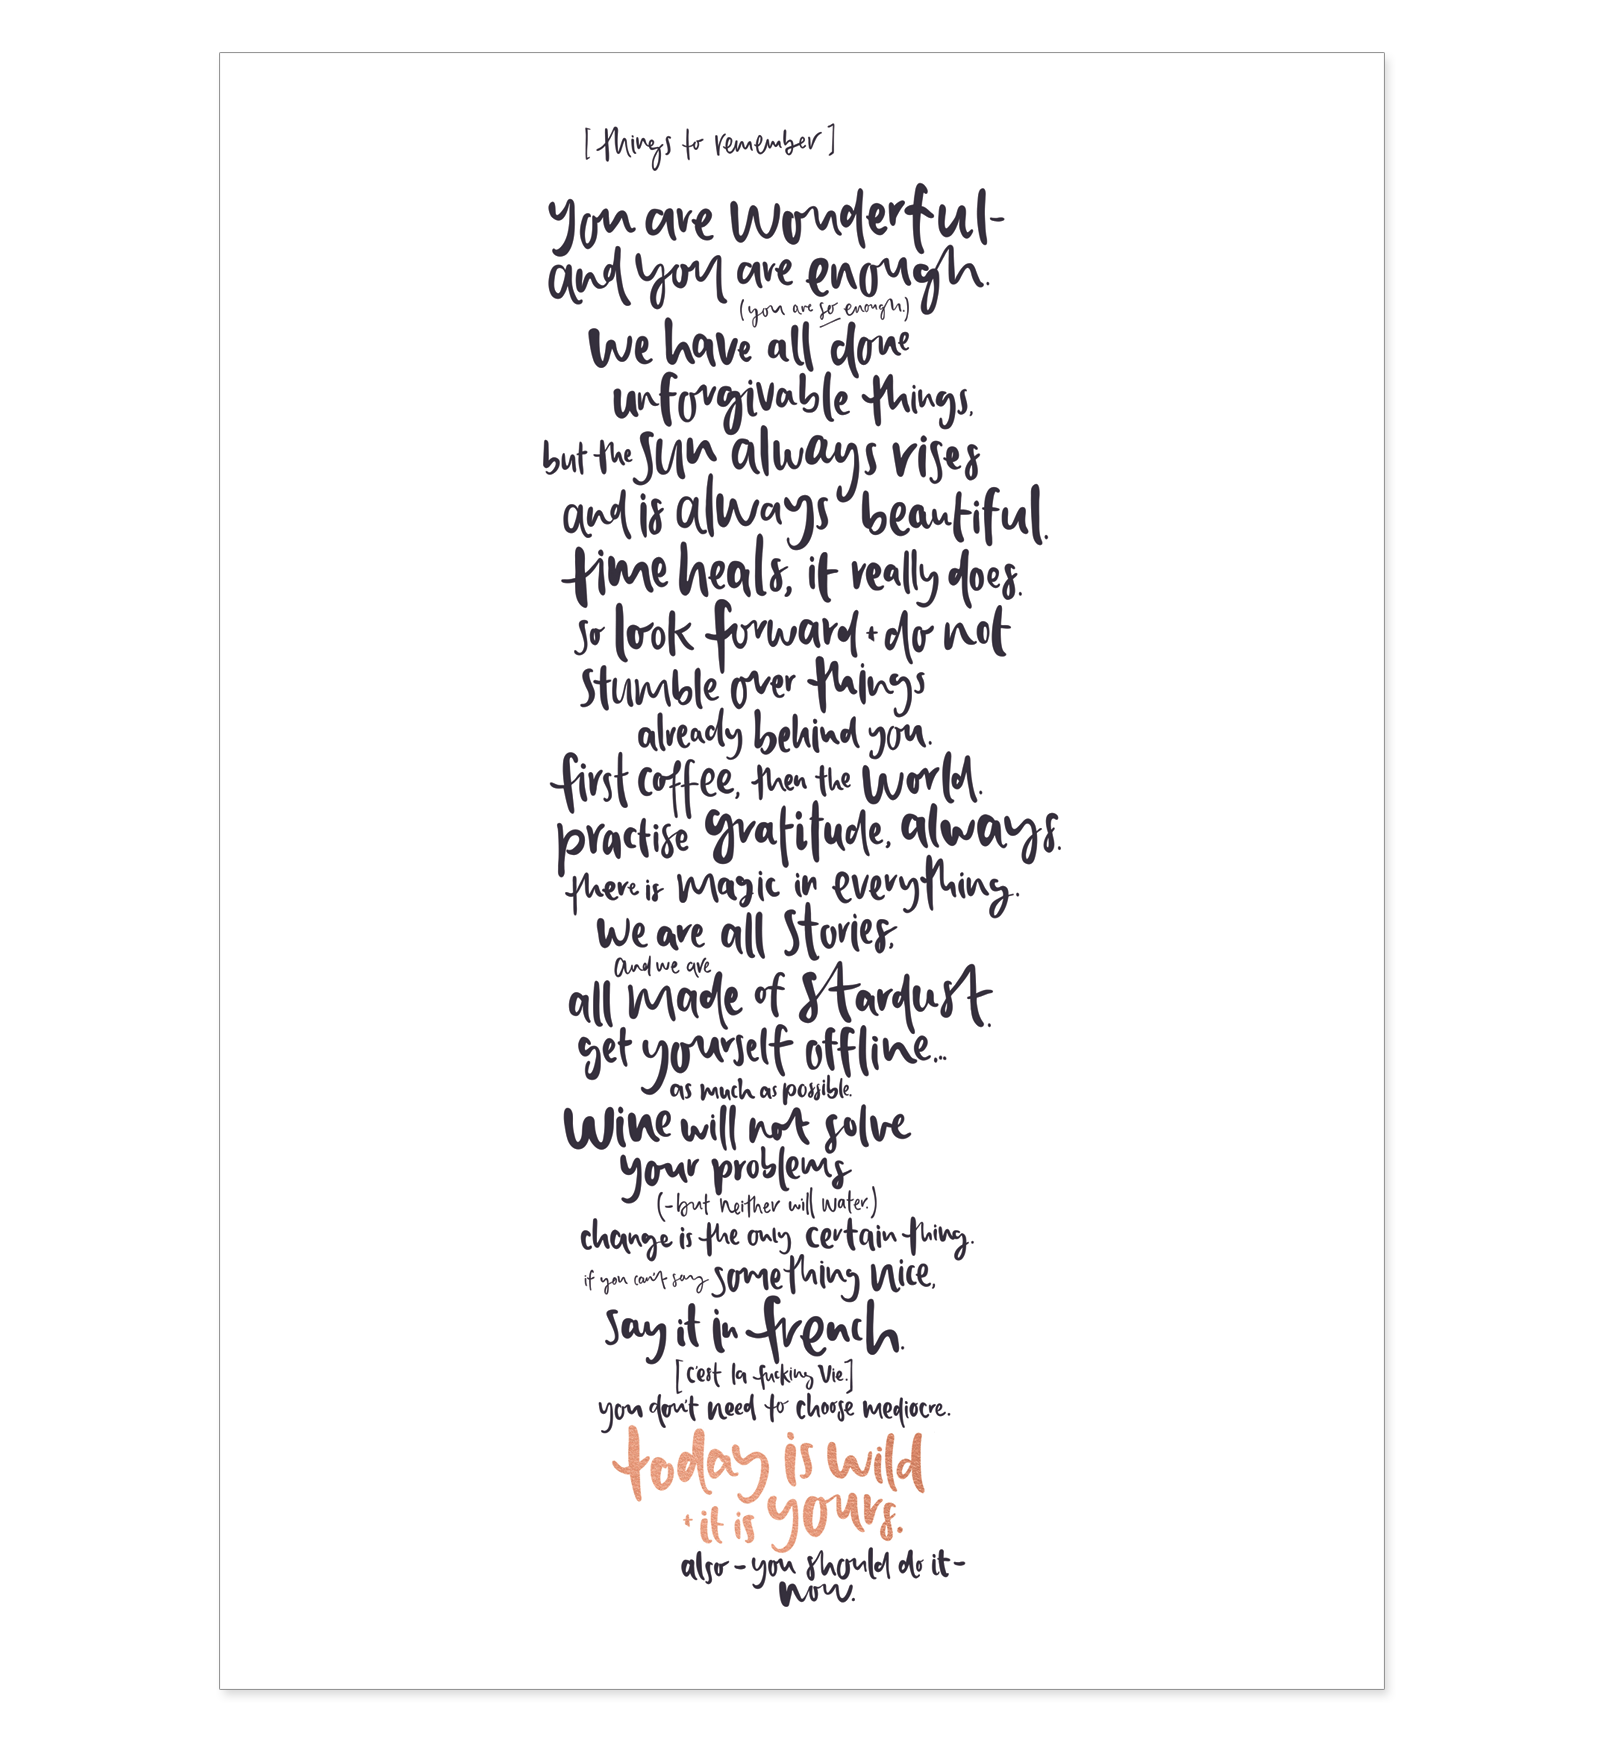 [things to remember]
you are wonderful-
and you are enough.
(you are so enough.)
we have all done
unforgivable things,
but the sun always rises
and is always beautiful.
time heals, it really does.
so look forward + do not
stumble over things
already behind you.
first coffee, then the world.
practise gratitude, always.
there is magic in everything.
we are all stories,
and we are
all made of stardust.
get yourself offline...
as much as possible.
wine will not solve
your problems
(-but neither will water.)
change is the only certain thing.
if you can't say something nice,
say it in french.
[c'est la fucking vie.]
you don't need to choose mediocre.
today is wild
+ it is yours.
also - you should do it -
now.